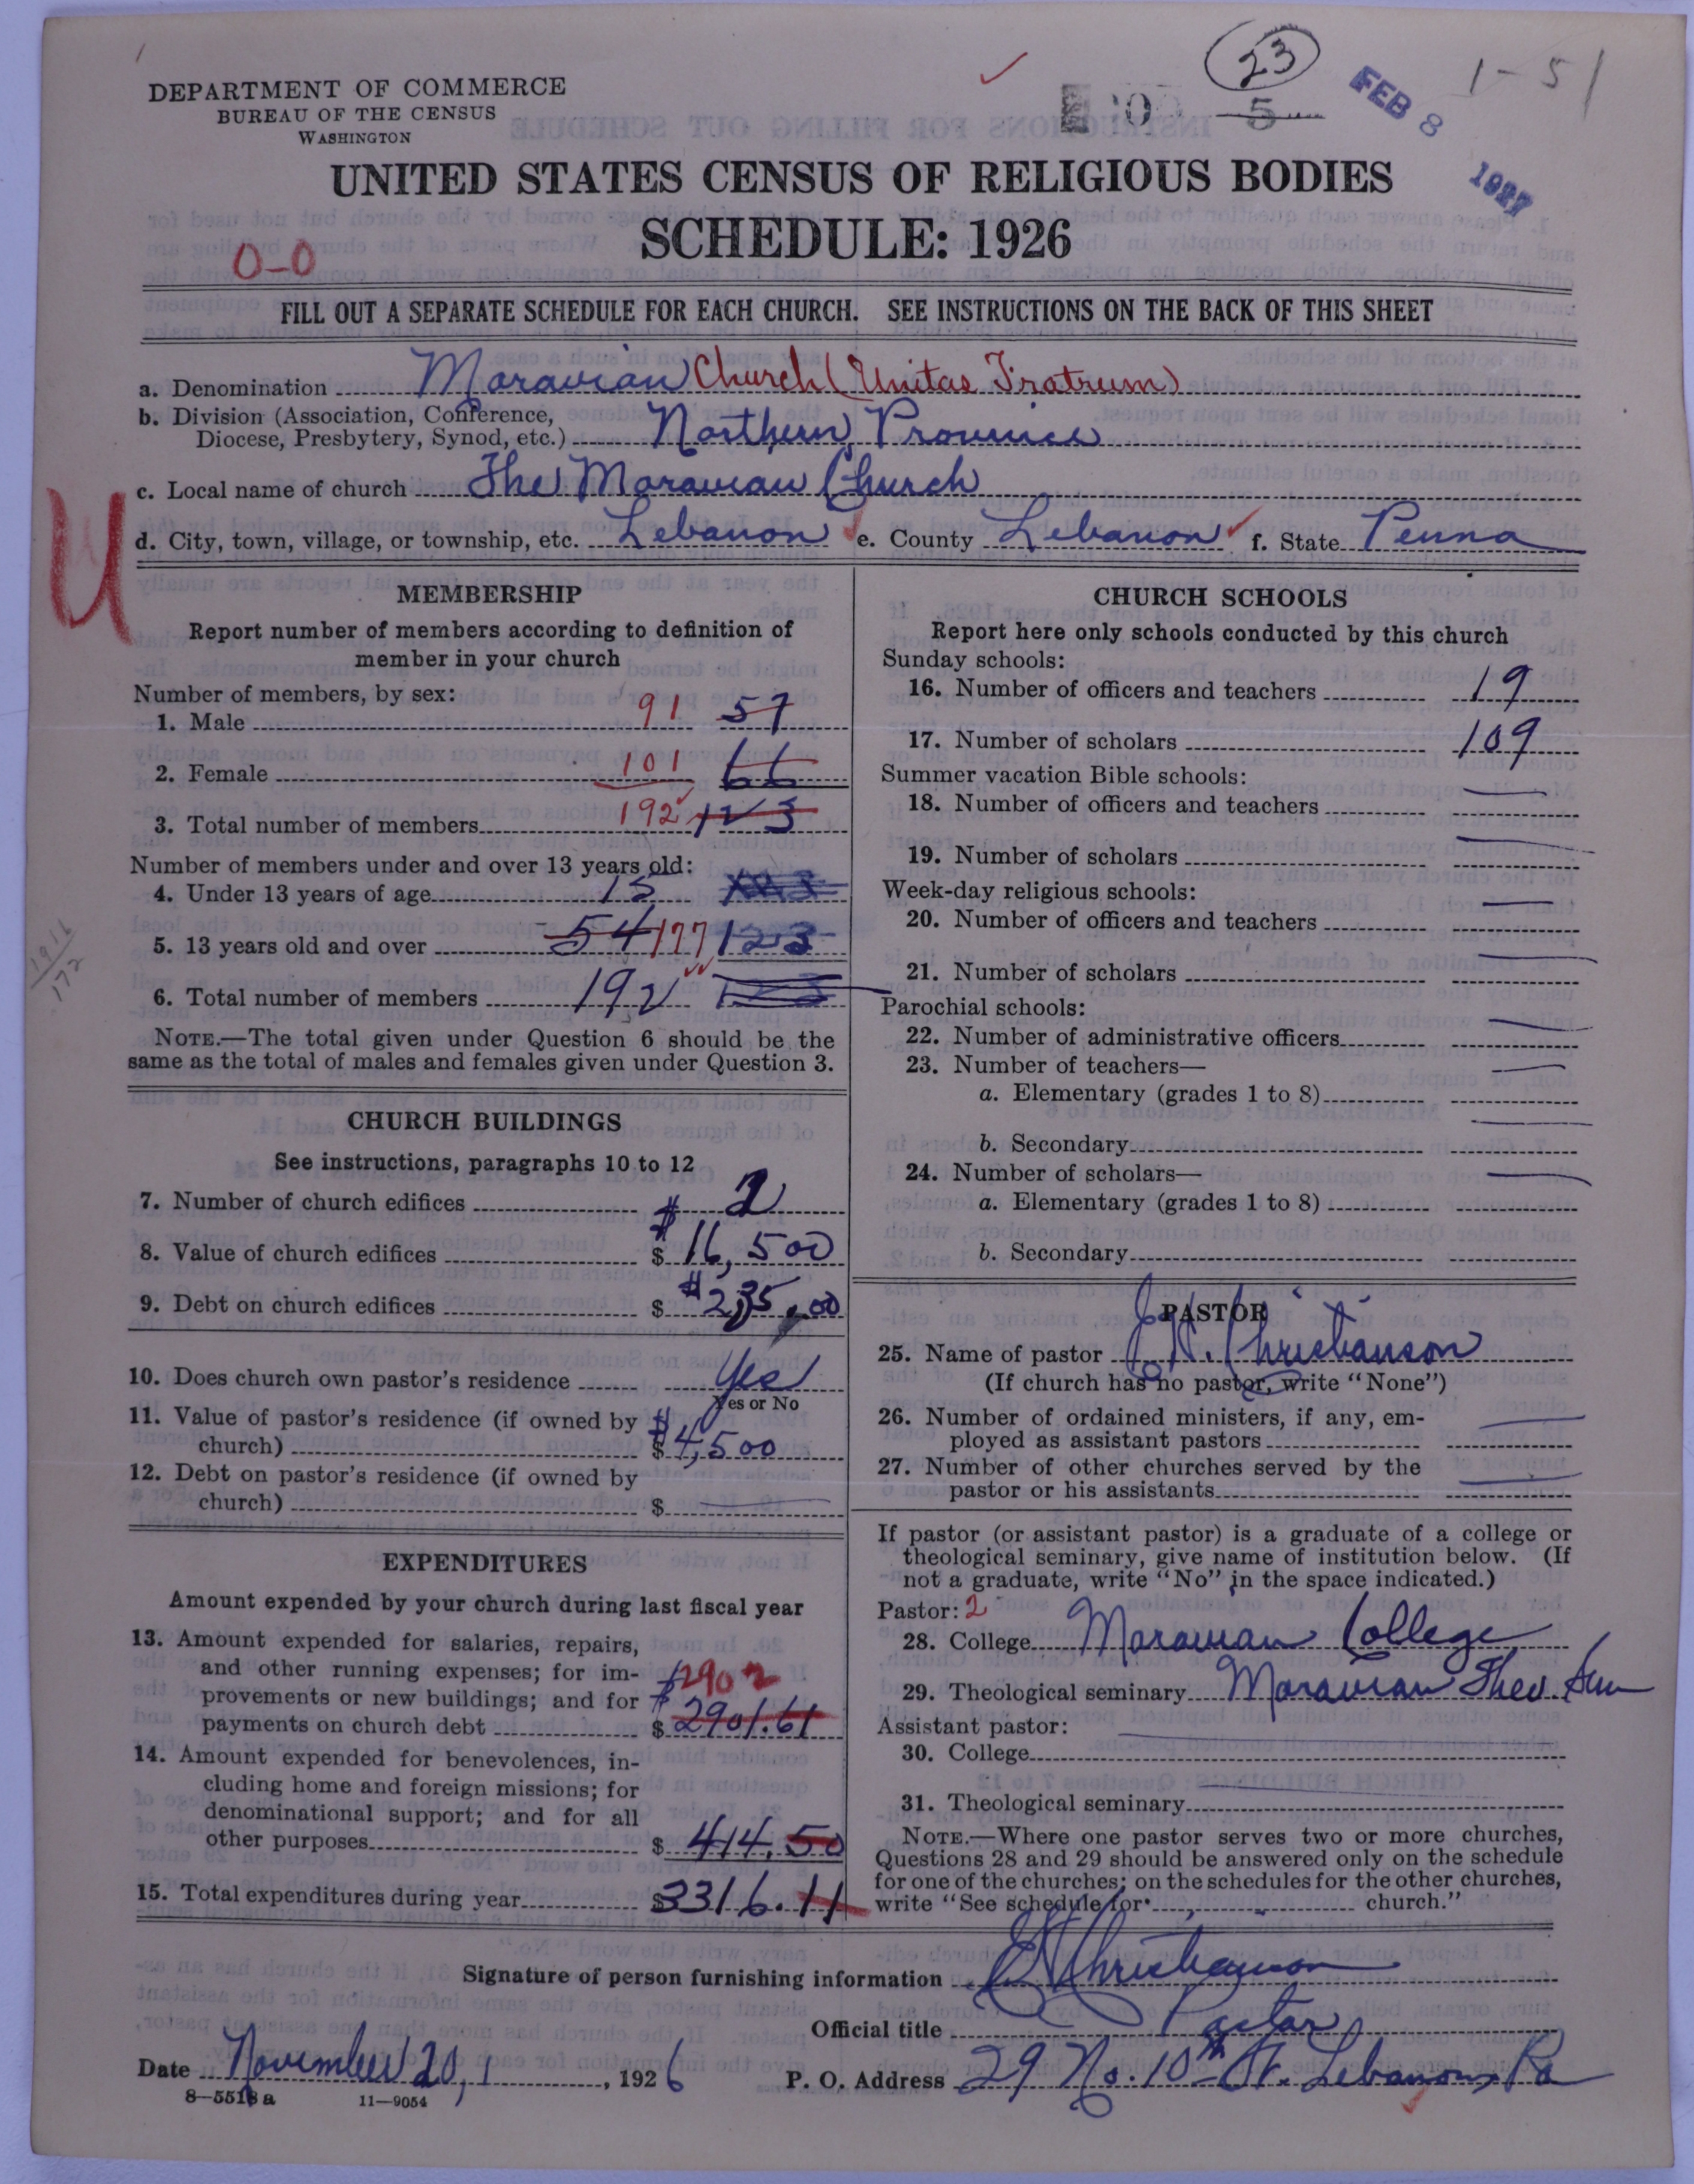 23
1-51
DEPARTMENT OF COMMERCE
BUREAU OF THE CENSUS
WASHINGTON
5
FEB 8 1927
UNITED STATES CENSUS OF RELIGIOUS BODIES
SCHEDULE: 1926
0-0
FILL OUT A SEPARATE SCHEDULE FOR EACH CHURCH. SEE INSTRUCTIONS ON THE BACK OF THIS SHEET
a. Denomination Moravian Church (Unitas Fratrum)
b. Division (Association, Conference,
Diocese, Presbytery, Synod, etc.) Northern Province
c. Local name of church The Moravian Church
U
d. City, town, village, or township, etc. Lebanon e. County Lebanon f. State Penna
MEMBERSHIP
Report number of members according to definition of
member in your church
Number of members, by sex:
1. Male 91 57
2. Female 101 66
3. Total number of members 192 123
Number of members under and over 13 years old:
4. Under 13 years of age 15
5. 13 years old and over 54 177 123
6. Total number of members 192 123
1916
172
NOTE.—The total given under Question 6 should be the
same as the total of males and females given under Question 3.
CHURCH BUILDINGS
See instructions, paragraphs 10 to 12
7. Number of church edifices 2
8. Value of church edifices $ $ 16,500
9. Debt on church edifices $ $ 235.00
10. Does church own pastor's residence Yes
Yes or No
11. Value of pastor's residence (if owned by
church) $ $ 4,500
12. Debt on pastor's residence (if owned by
church) $
EXPENDITURES
Amount expended by your church during last fiscal year
13. Amount expended for salaries, repairs,
and other running expenses; for im-
provements or new buildings; and for $2902
payments on church debt $ 2901.61
14. Amount expended for benevolences, in-
cluding home and foreign missions; for
denominational support; and for all
other purposes $ 414.50
15. Total expenditures during year $3316.11
CHURCH SCHOOLS
Report here only schools conducted by this church
Sunday schools:
16. Number of officers and teachers 19
17. Number of scholars 109
Summer vacation Bible schools:
18. Number of officers and teachers
19. Number of scholars
Week-day religious schools:
20. Number of officers and teachers
21. Number of scholars
Parochial schools:
22. Number of administrative officers
23. Number of teachers—
a. Elementary (grades 1 to 8)
b. Secondary
24. Number of scholars—
a. Elementary (grades 1 to 8)
b. Secondary
PASTOR
25. Name of pastor Christianson
(If church has no pastor, write "None")
26. Number of ordained ministers, if any, em-
ployed as assistant pastors
27. Number of other churches served by the
pastor or his assistants
If pastor (or assistant pastor) is a graduate of a college or
theological seminary, give name of institution below. (If
not a graduate, write "No" in the space indicated.)
Pastor: 2
28. College Moravian College
29. Theological seminary Moravian Theo. Sem
Assistant pastor:
30. College
31. Theological seminary
NOTE.—Where one pastor serves two or more churches,
Questions 28 and 29 should be answered only on the schedule
for one of the churches; on the schedules for the other churches,
write "See schedule for church."
Signature of person furnishing information Christianson
Official title Pastor
Date November 20, 1926
P. O. Address 29 No. 10th St. Lebanon, Pa
8-5518 a 11-9054